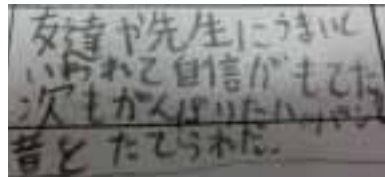 友達や先生にうまいと
いわれて自信がもてた。
次もがんばりたい。
音と たてられた.